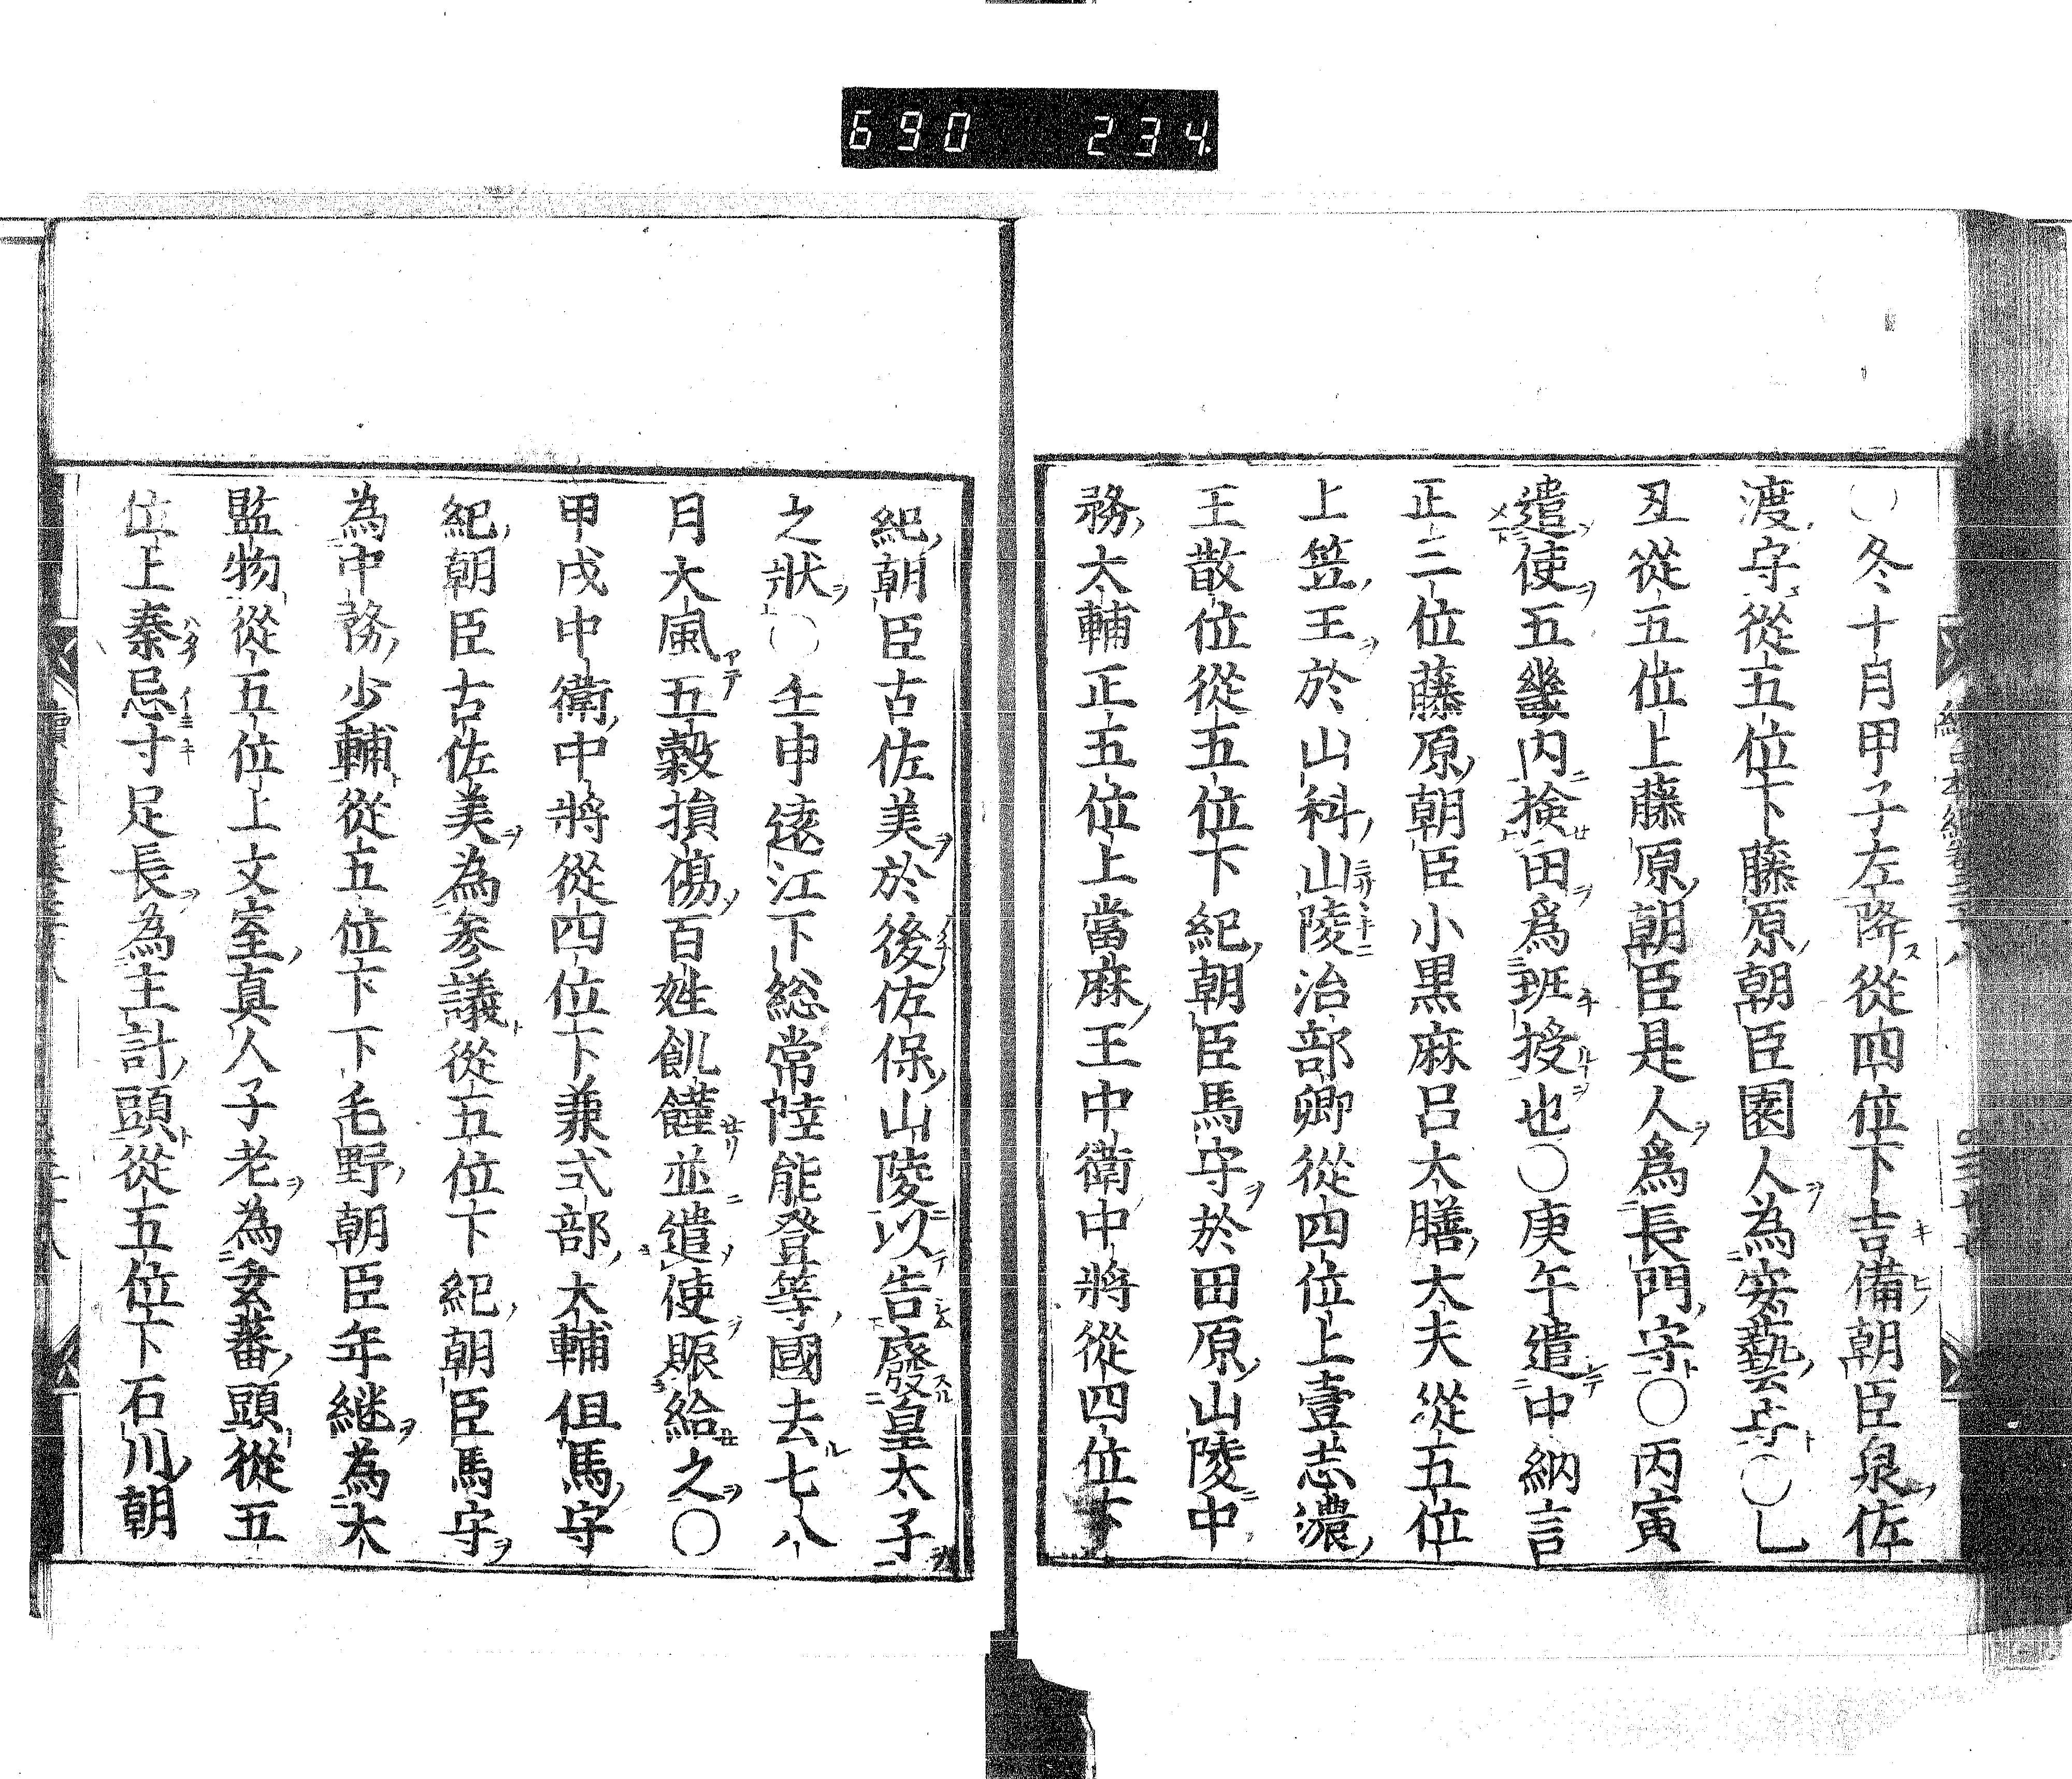 690 234
〇冬十月甲子左降從四位下吉備朝臣泉佐
渡守從五位下藤原朝臣園人為安藝守〇乙
丑從五位上藤原朝臣是人爲長門守〇丙寅
遣使五畿内撿田爲班授也〇庚午遣中納言
正三位藤原朝臣小黒麻呂大膳大夫從五位
上笠王於山科山陵治部卿從四位上壹志濃
王散位從五位下紀朝臣馬守於田原山陵中
務大輔正五位上當麻王中衛中將從四位下
紀朝臣古佐美於後佐保山陵以告廢皇太子
之狀〇壬申遠江下総常陸能登等國去七八
月大風五穀損傷百姓飢饉並遣使賑給之〇
甲戌中衛中將從四位下兼式部大輔但馬守
紀朝臣古佐美為参議從五位下紀朝臣馬守
為中務少輔從五位下下毛野朝臣年継為大
監物從五位上文室真人子老為玄蕃頭從五
位上秦忌寸足長為主計頭從五位下石川朝